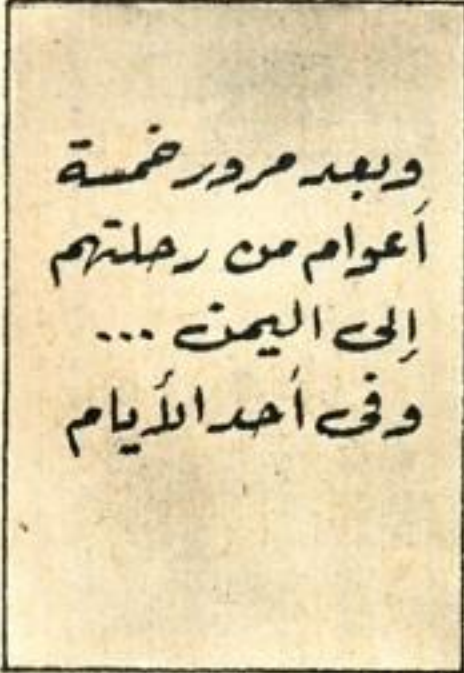 وبعد مرور خمسة
أعوام من رحلتهم
إلى اليمن ...
وفى أحد الأيام